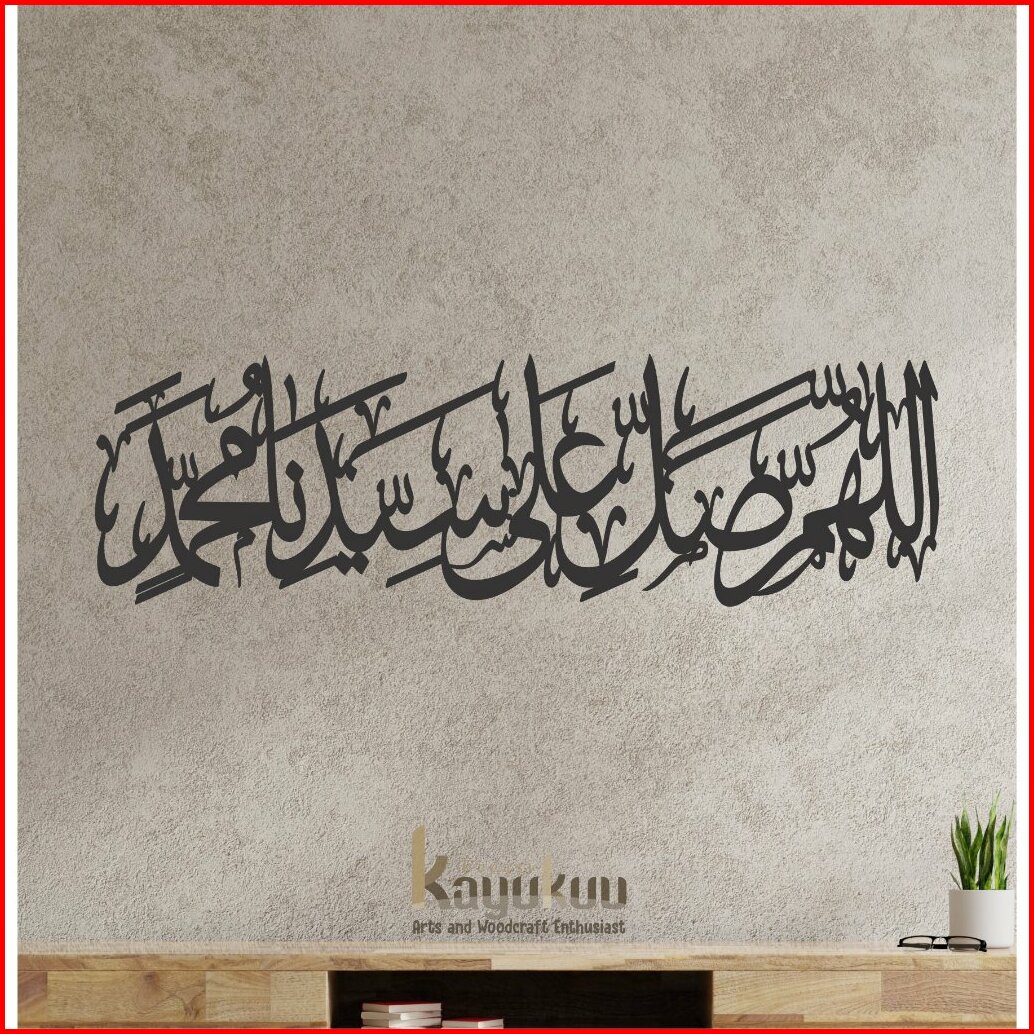 اللهم صل على سيدنا محمد
Kayukuu
Arts and Woodcraft Enthusiast